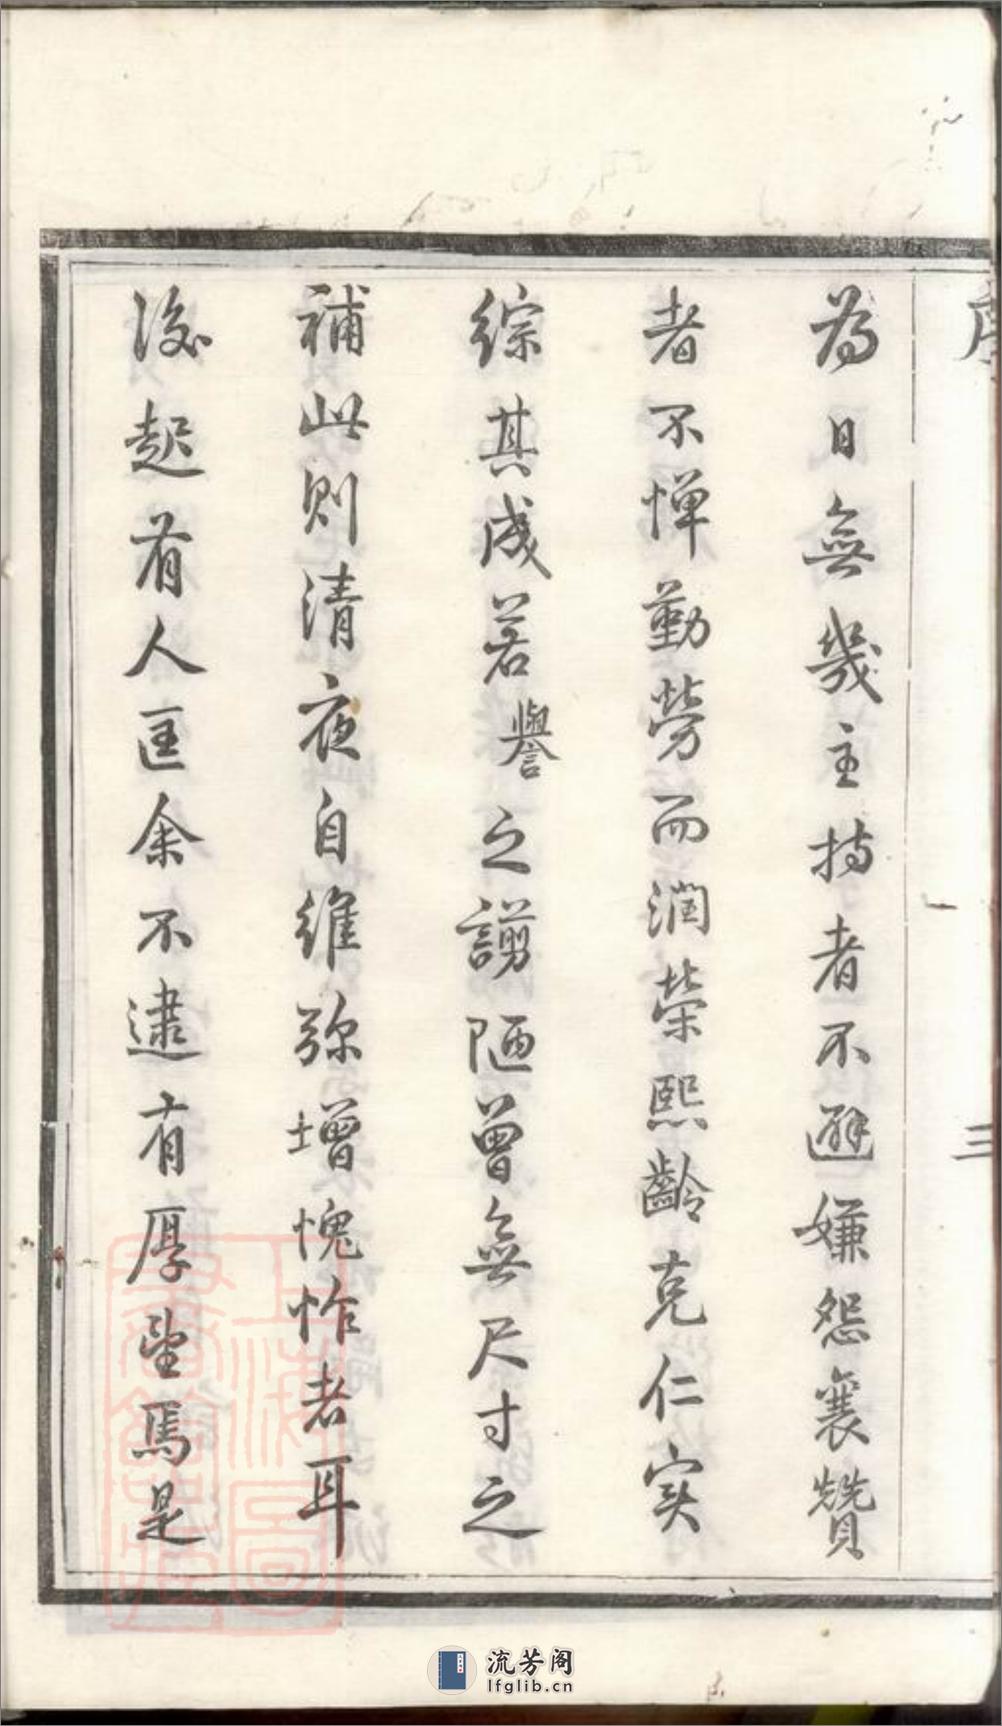 序
三
為日無幾主持者不避嫌怨襄贊
者不憚勤勞而潤榮熙齡克仁实
綜其成若譽之謭陋曾無尺寸之
補此則清夜自維弥增愧怍者耳
後起有人匡余不逮有厚望焉是
上海圖書館藏
流芳阁
lfglib.cn